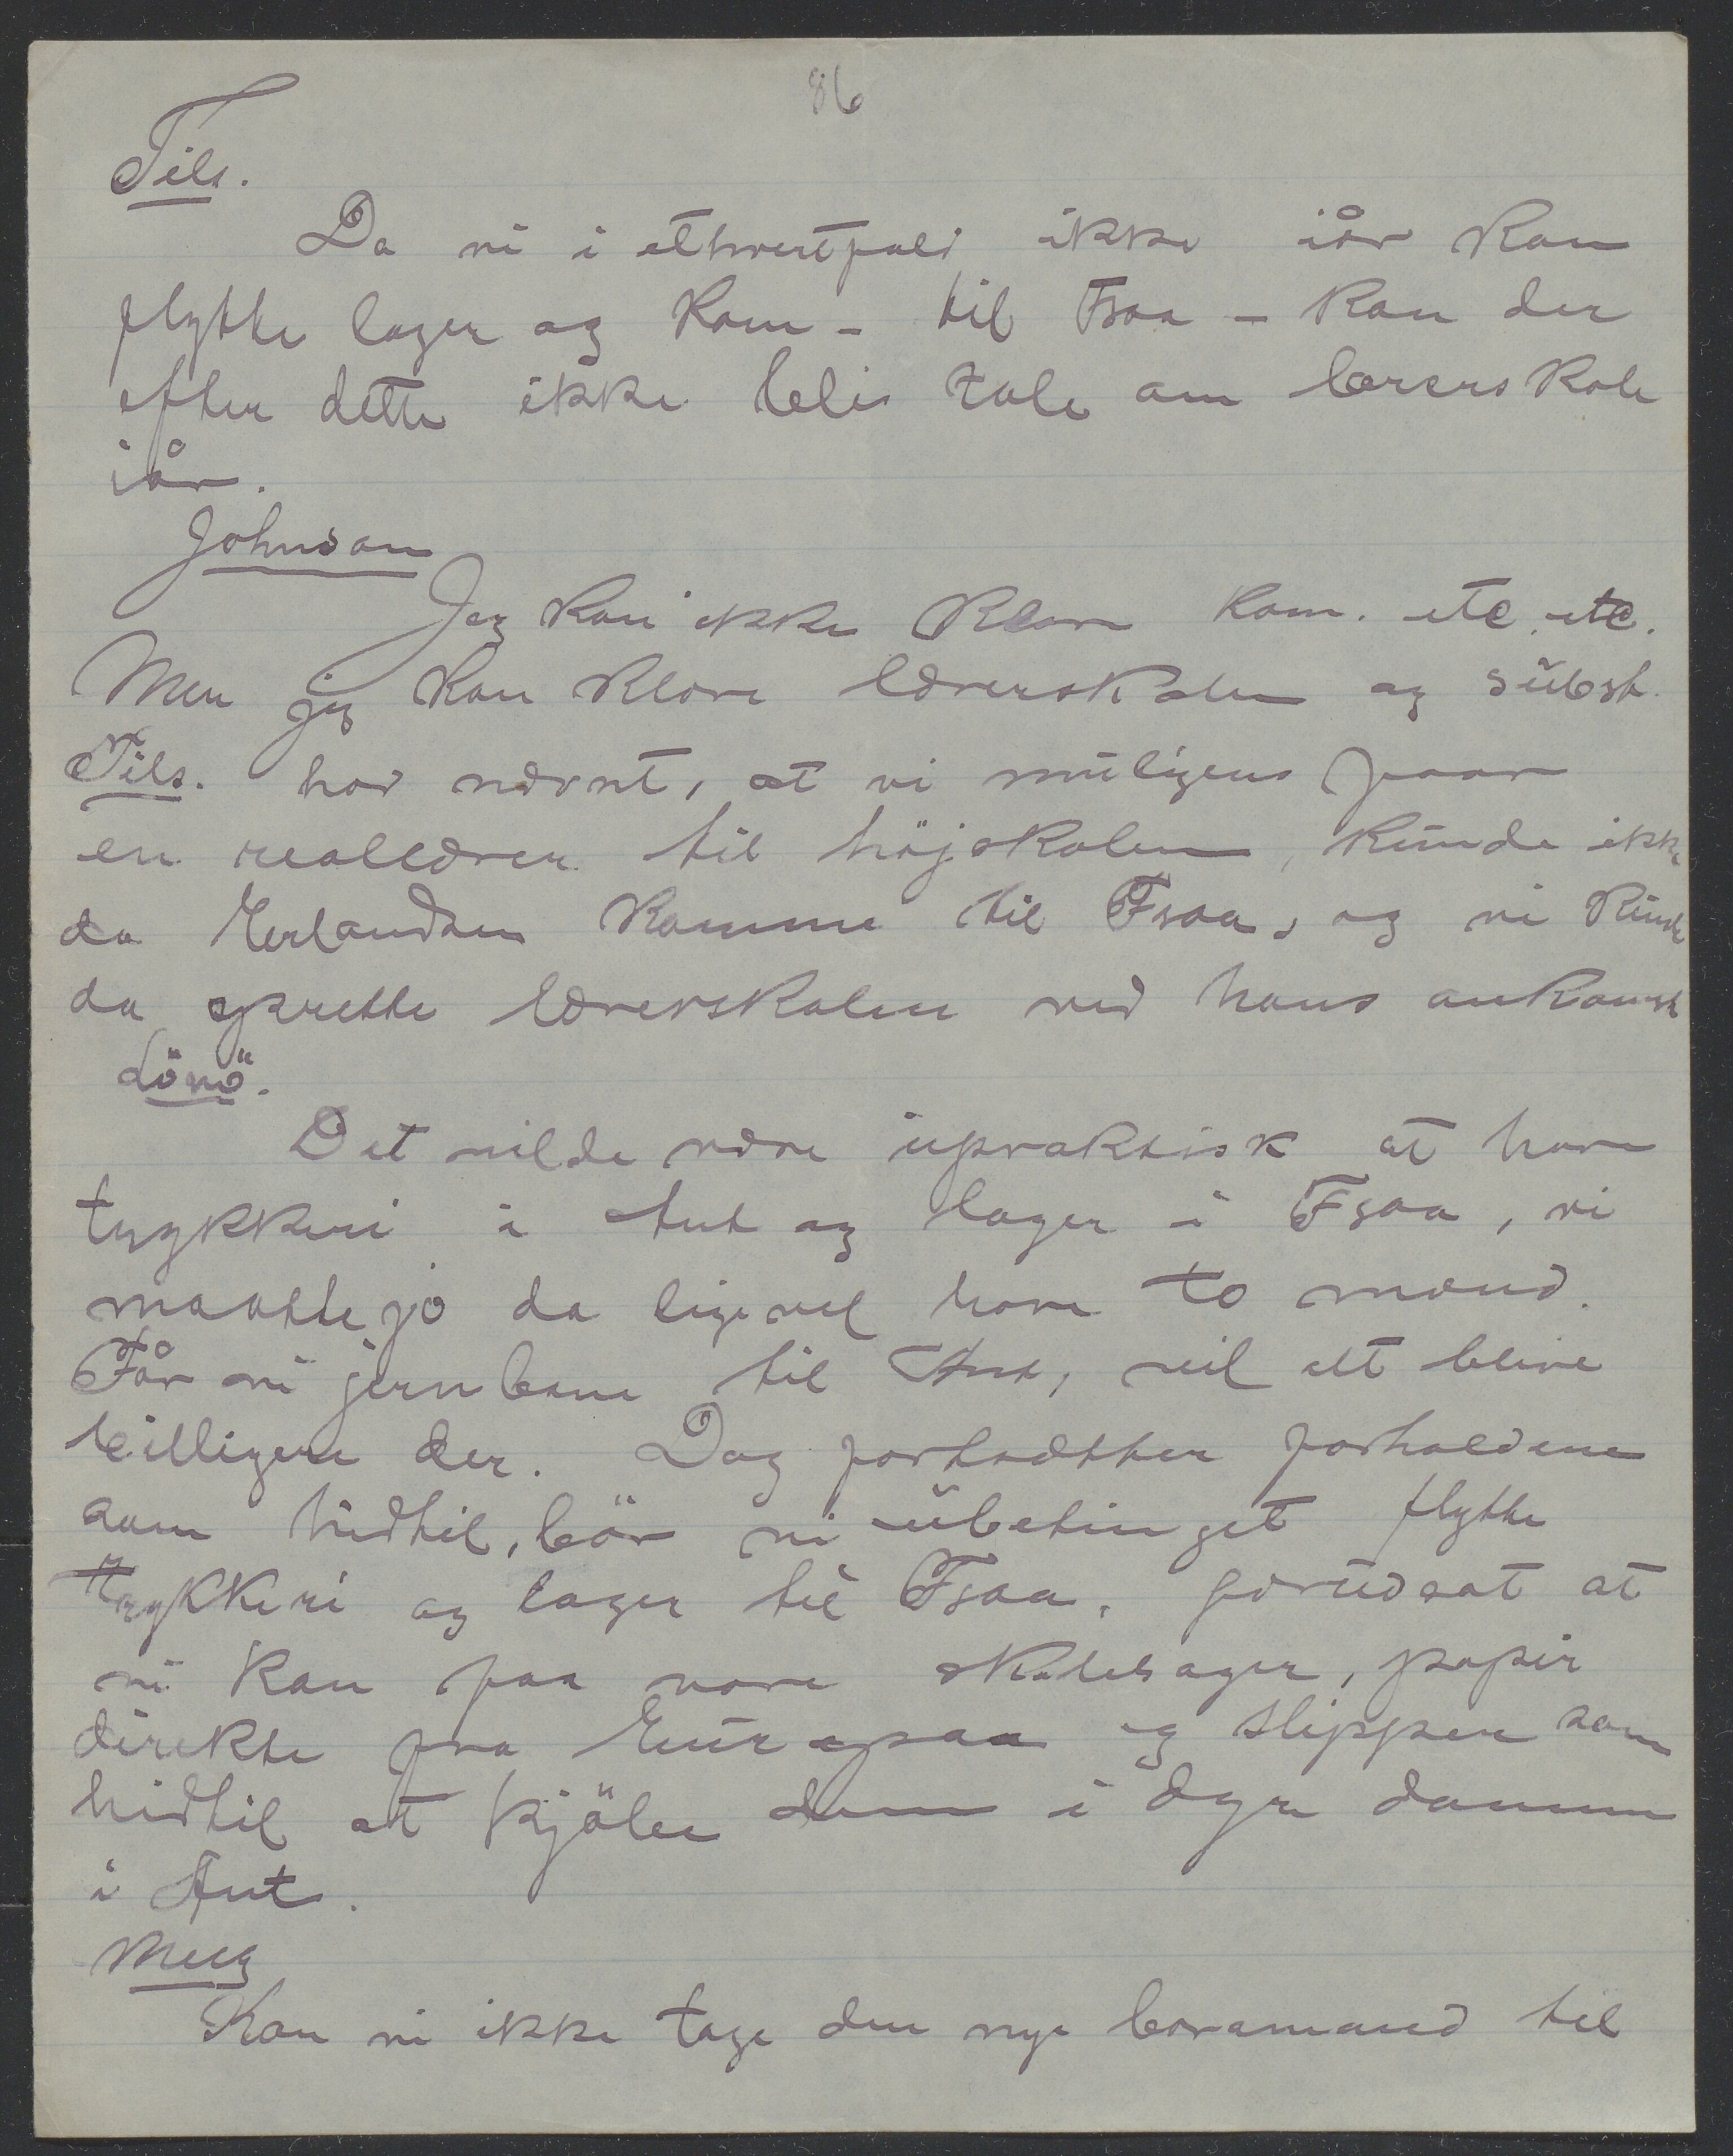 86
Tils.
Da vi i ethvertfald ikke iår kan
flytte lager og kom- til Fsoa - kan der
efter dette ikke blir tale om lærerskole
iår.
Johnson
Jeg kan ikke klare kom. etc. etc.
Men jeg kan klare lærerskolen og subst.
Tils. har nævnt, at vi muligens faar
en reallærer til höjskolen, kunde ikke
da Erlandsen komme til Fsoa, og vi kunde
da oprette lærerskolen ved hans ankomst
Lönö.
Det vilde være upraktisk at have
trykkeri i Ant og lager i Fsoa, vi
maatte jo da ligevel have to mænd.
Får vi jernbane til Ant, vil alt blive
billigere der. Dog fortsætter forholdene
som hidtil, bör vi ubetinget flytte
trykkeri og lager til Fsoa, forudsat at
vi kan faa vore skolesager, papir
direkte fra Europaa og slipper som
hidtil at kjöbe dem i dyre domme
i Ant.
Meeg
Kan vi ikke tage den nye boramand til